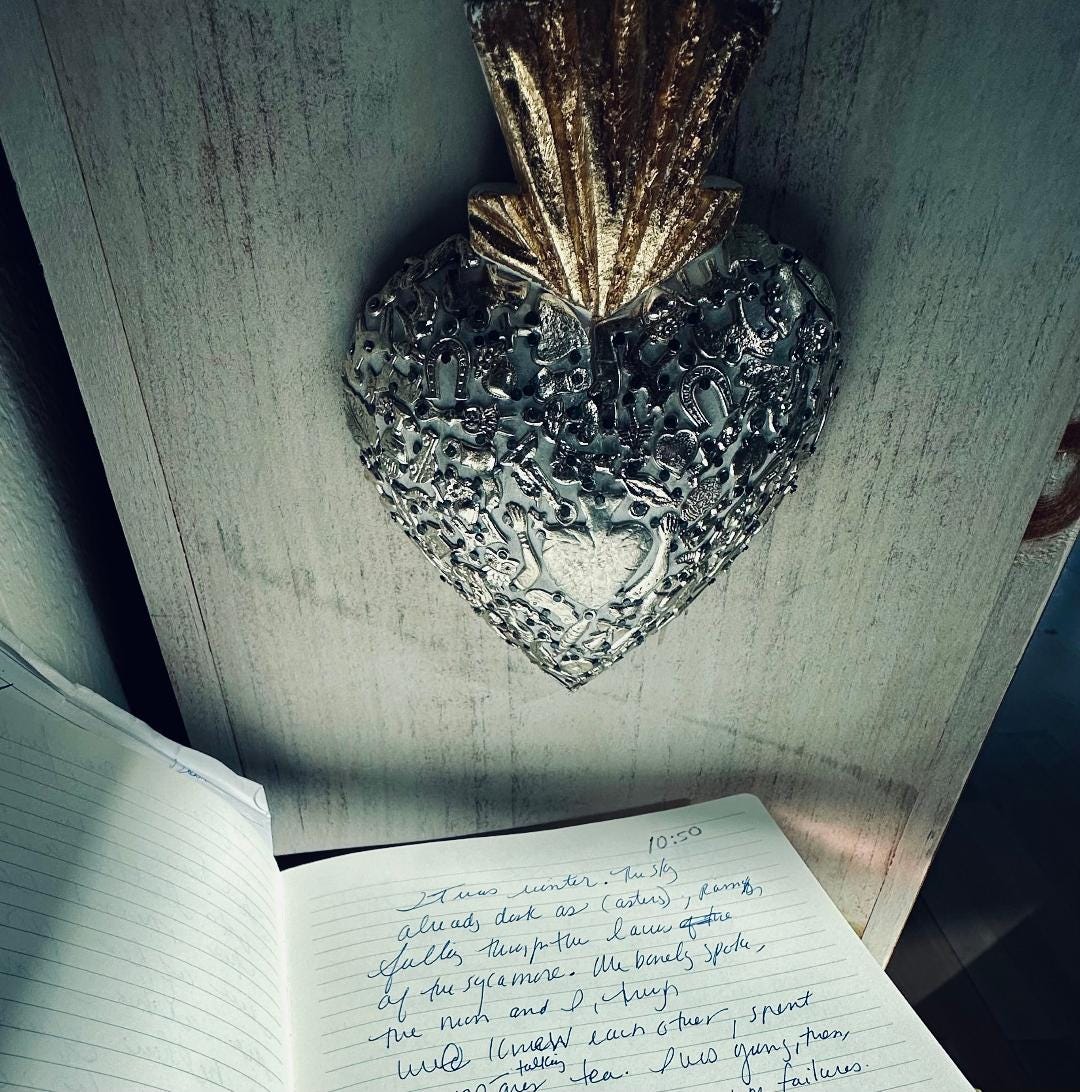 10:50
It was winter. The sky
already dark as (asters),
falling through the
of the sycamore. We barely spoke,
the man and I, though
we knew each other, spent
talking
over tea. I was young, then,
failures.